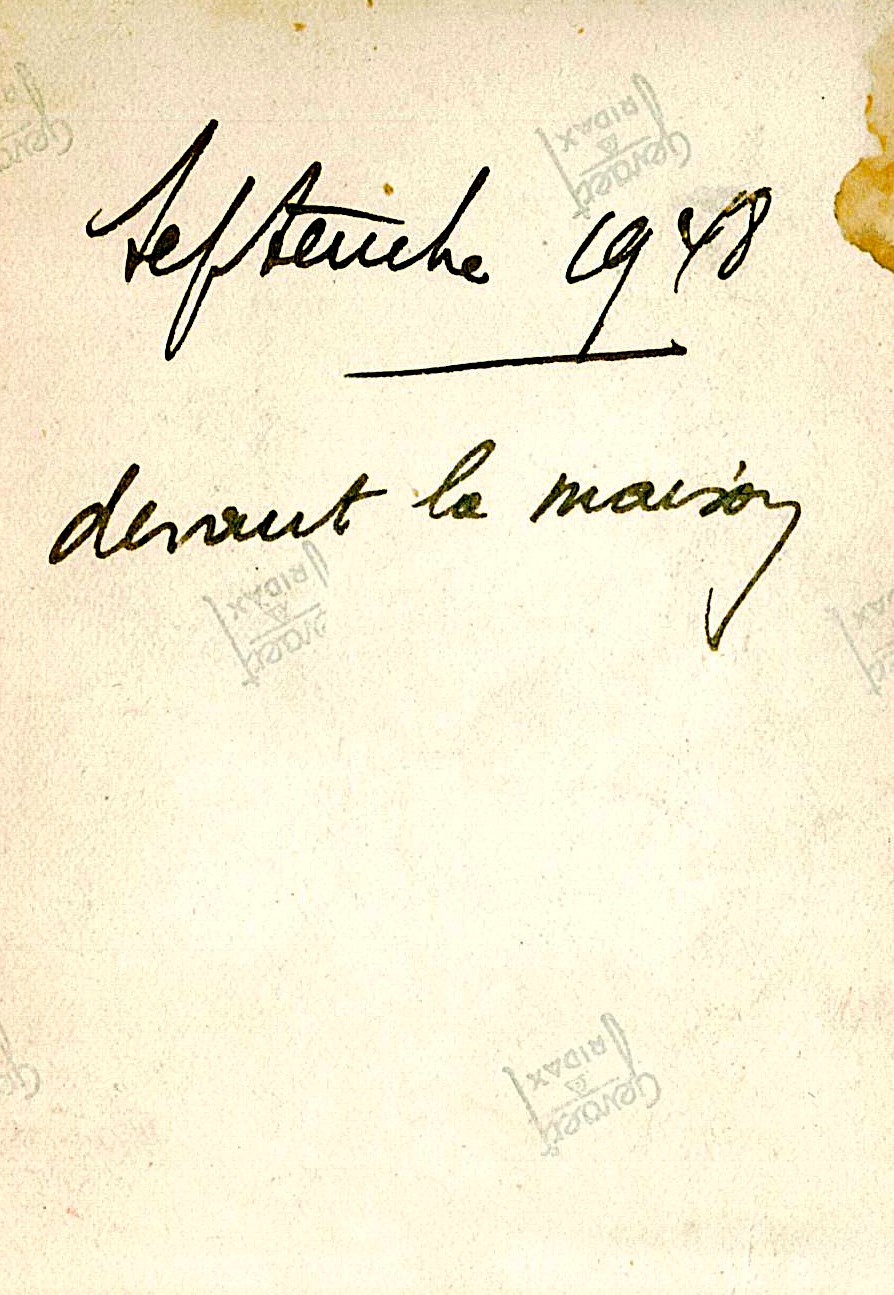 Septembre 1948
devant la maison
Gevaert
RIDAX
Gevaert
RIDAX
Gevaert
RIDAX